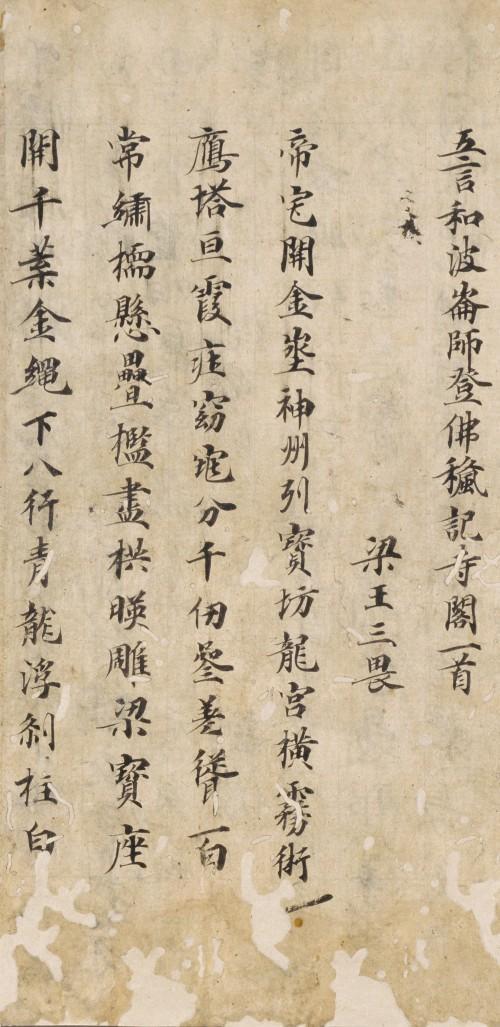 五言和波崙師登佛穐記寺閣一首
梁王三畏
帝宅開金埊神州列寶坊龍宮橫霧術一
鴈塔亘霞庄窈窕分千仞叅差聳一百
常繡檽懸疊檻畫栱暎雕梁寶座
開千葉金繩下八行青龍浮剎柱白